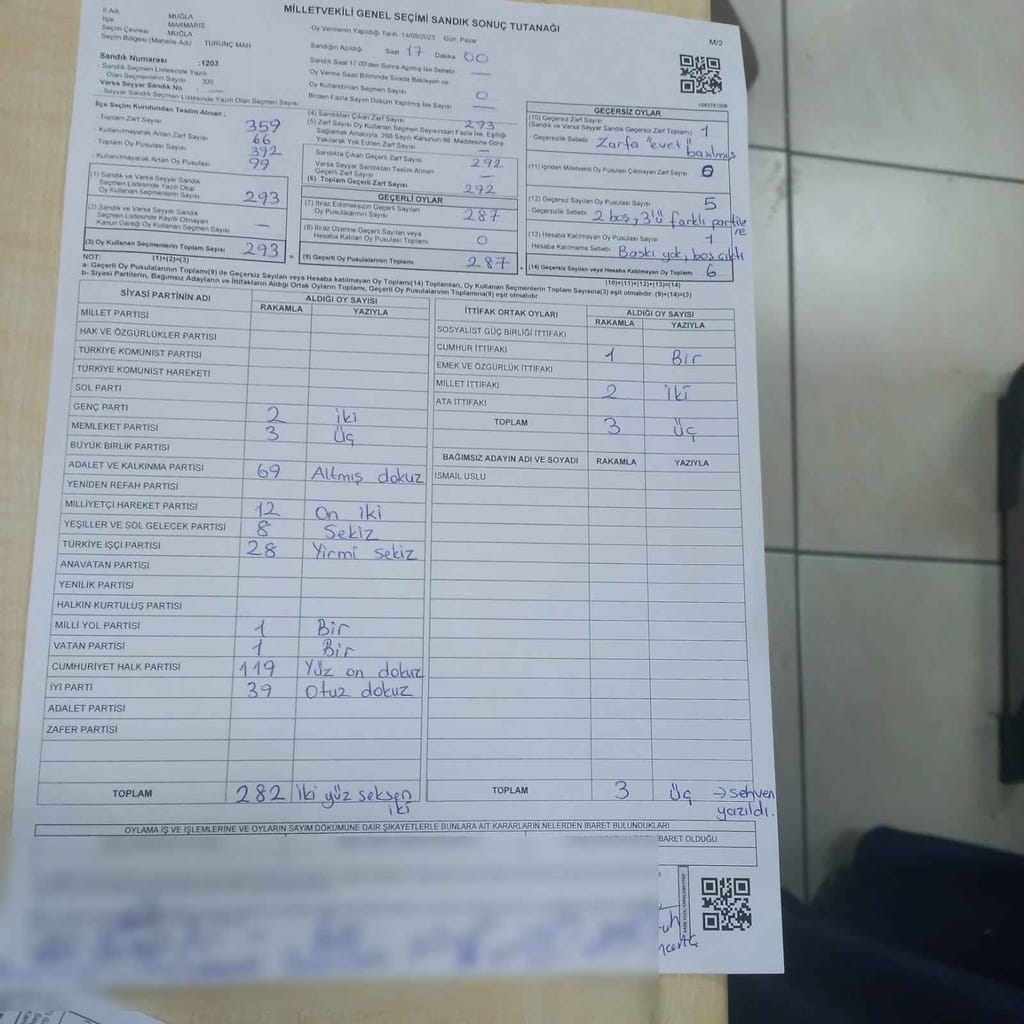 MİLLETVEKİLİ GENEL SEÇİMİ SANDIK SONUÇ TUTANAĞI
M/2
İl Adı MUĞLA
İlçe MARMARİS
Seçim Çevresi MUĞLA
Seçim Bölgesi (Mahalle Adı) TURUNÇ MAH
Oy Vermenin Yapıldığı Tarih :14/05/2023 Gün: Pazar
Sandığın Açıldığı Saat 17 Dakika 00
Sandık Saat 17:00'den Sonra Açılmış İse Sebebi —
Oy Verme Saati Bitiminde Sırada Bekleyen ve
Oy Kullandırılan Seçmen Sayısı 0
Birden Fazla Sayım Döküm Yapılmış İse Sayısı —
Sandık Numarası :1203
- Sandık Seçmen Listesinde Yazılı
Olan Seçmenlerin Sayısı
Varsa Seyyar Sandık No : —
- Seyyar Sandık Seçmen Listesinde Yazılı Olan Seçmen Sayısı
İlçe Seçim Kurulundan Teslim Alınan ;
- Toplam Zarf Sayısı 359
- Kullanılmayarak Artan Zarf Sayısı 66
- Toplam Oy Pusulası Sayısı 392
- Kullanılmayarak Artan Oy Pusulası 99
(1) Sandık ve Varsa Seyyar Sandık
Seçmen Listesinde Yazılı Olup
Oy Kullanan Seçmenlerin Sayısı 293
(2) Sandık ve Varsa Seyyar Sandık
Seçmen Listesinde Kayıtlı Olmayan
Kanun Gereği Oy Kullanan Seçmen Sayısı —
(3) Oy Kullanan Seçmenlerin Toplam Sayısı 293
(1)+(2)=(3)
(4) Sandıktan Çıkan Zarf Sayısı 293
(5) Zarf Sayısı Oy Kullanan Seçmen Sayısından Fazla İse, Eşitliği
Sağlamak Amacıyla, 298 Sayılı Kanunun 98. Maddesine Göre
Yakılarak Yok Edilen Zarf Sayısı —
Sandıkta Çıkan Geçerli Zarf Sayısı 292
Varsa Seyyar Sandıktan Teslim Alınan
Geçerli Zarf Sayısı —
(6) Toplam Geçerli Zarf Sayısı 292
GEÇERLİ OYLAR
(7) İtiraz Edilmeksizin Geçerli Sayılan
Oy Pusulalarının Sayısı 287
(8) İtiraz Üzerine Geçerli Sayılan veya
Hesaba Katılan Oy Pusulası Toplamı 0
(9) Geçerli Oy Pusulalarının Toplamı 287
GEÇERSİZ OYLAR
(10) Geçersiz Zarf Sayısı
(Sandık ve Varsa Seyyar Sandık Geçersiz Zarf Toplamı) 1
- Geçersizlik Sebebi: Zarfa "evet" basılmış
(11) İçinden Milletvekili Oy Pusulası Çıkmayan Zarf Sayısı 0
(12) Geçersiz Sayılan Oy Pusulası Sayısı 5
- Geçersizlik Sebebi: 2 boş, 3'ü farklı partilere
(13) Hesaba Katılmayan Oy Pusulası Sayısı 1
- Hesaba Katılmama Sebebi: Baskı yok, boş çıktı
(14) Geçersiz Sayılan veya Hesaba Katılmayan Oy Toplamı 6
(10)+(11)+(12)+(13)=(14)
NOT:
a- Geçerli Oy Pusulalarının Toplamı(9) ile Geçersiz Sayılan veya Hesaba katılmayan Oy Toplamı(14) Toplamları, Oy Kullanan Seçmenlerin Toplam Sayısına(3) eşit olmalıdır. (9)+(14)=(3)
b- Siyasi Partilerin, Bağımsız Adayların ve İttifakların Aldığı Ortak Oyların Toplamı, Geçerli Oy Pusulalarının Toplamına(9) eşit olmalıdır.
SİYASİ PARTİNİN ADI ALDIĞI OY SAYISI
RAKAMLA YAZIYLA
MİLLET PARTİSİ
HAK VE ÖZGÜRLÜKLER PARTİSİ
TÜRKİYE KOMÜNİST PARTİSİ
TÜRKİYE KOMÜNİST HAREKETİ
SOL PARTİ
GENÇ PARTİ 2 iki
MEMLEKET PARTİSİ 3 Üç
BÜYÜK BİRLİK PARTİSİ
ADALET VE KALKINMA PARTİSİ 69 Altmış dokuz
YENİDEN REFAH PARTİSİ
MİLLİYETÇİ HAREKET PARTİSİ 12 On iki
YEŞİLLER VE SOL GELECEK PARTİSİ 8 Sekiz
TÜRKİYE İŞÇİ PARTİSİ 28 Yirmi sekiz
ANAVATAN PARTİSİ
YENİLİK PARTİSİ
HALKIN KURTULUŞ PARTİSİ
MİLLİ YOL PARTİSİ 1 Bir
VATAN PARTİSİ 1 Bir
CUMHURİYET HALK PARTİSİ 119 Yüz on dokuz
İYİ PARTİ 39 Otuz dokuz
ADALET PARTİSİ
ZAFER PARTİSİ
TOPLAM 282 İki yüz seksen iki
İTTİFAK ORTAK OYLARI ALDIĞI OY SAYISI
RAKAMLA YAZIYLA
SOSYALİST GÜÇ BİRLİĞİ İTTİFAKI
CUMHUR İTTİFAKI 1 Bir
EMEK VE ÖZGÜRLÜK İTTİFAKI
MİLLET İTTİFAKI 2 İki
ATA İTTİFAKI
TOPLAM 3 Üç
BAĞIMSIZ ADAYIN ADI VE SOYADI RAKAMLA YAZIYLA
İSMAİL USLU
TOPLAM 3 Üç → sehven yazıldı.
OYLAMA İŞ VE İŞLEMLERİNE VE OYLARIN SAYIM DÖKÜMÜNE DAİR ŞİKAYETLERLE BUNLARA AİT KARARLARIN NELERDEN İBARET BULUNDUKLARI
İBARET OLDUĞU